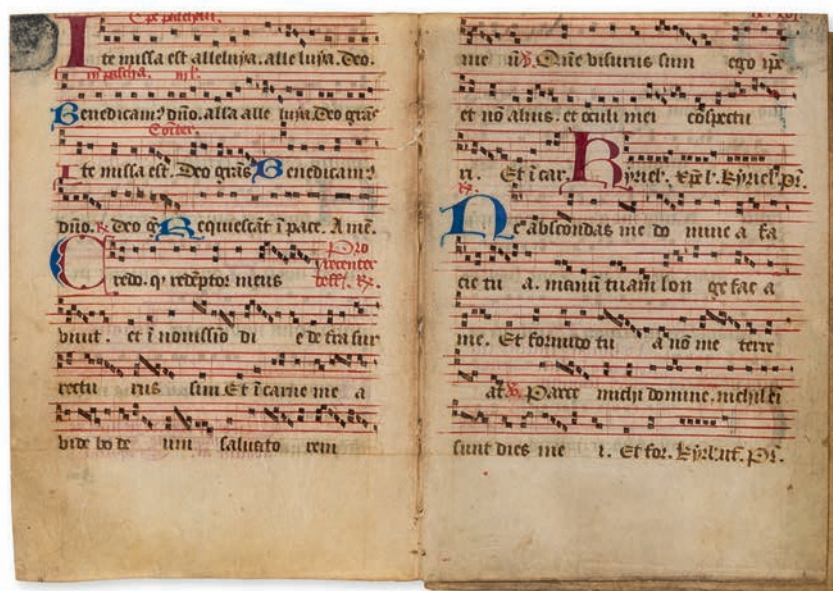 Tpe paschali.
Ite missa est alleluya. alleluya. Deo.
in pascha.
Benedicam9 dño. alla alle luya. Deo grãs
Ite missa est. Deo grãs Benedicam9
dño. R Deo g̃ Requiescãt ĩ pace. Amẽ.
Pro
recenter
Credo. q redẽptor meus deff. Rx.
viuit. et ĩ nouissĩo di e de tra sur
rectu rus sum Et ĩ carne me a
vide bo de um saluato rem
me ũ. V Quẽ visurus sum ego ipe
et nõ alius. et oculi mei cõspectu
ri. Et ĩ car. Kyriel. xpel. kyriel. Pr.
Rx.
Ne abscondas me do mine a fa
cie tu a. manũ tuam lon ge fac a
me. Et formido tu a nõ me terre
at. V Parce michi domine. nichil ẽi
sunt dies me i. Et for. kyrl. ut. Pr.